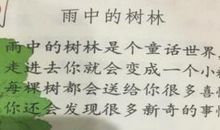 雨中的树林
雨中的树林是个童话世界,
走进去你就会变成一个小
每棵树都会送给你很多喜
你还会发现很多新奇的事